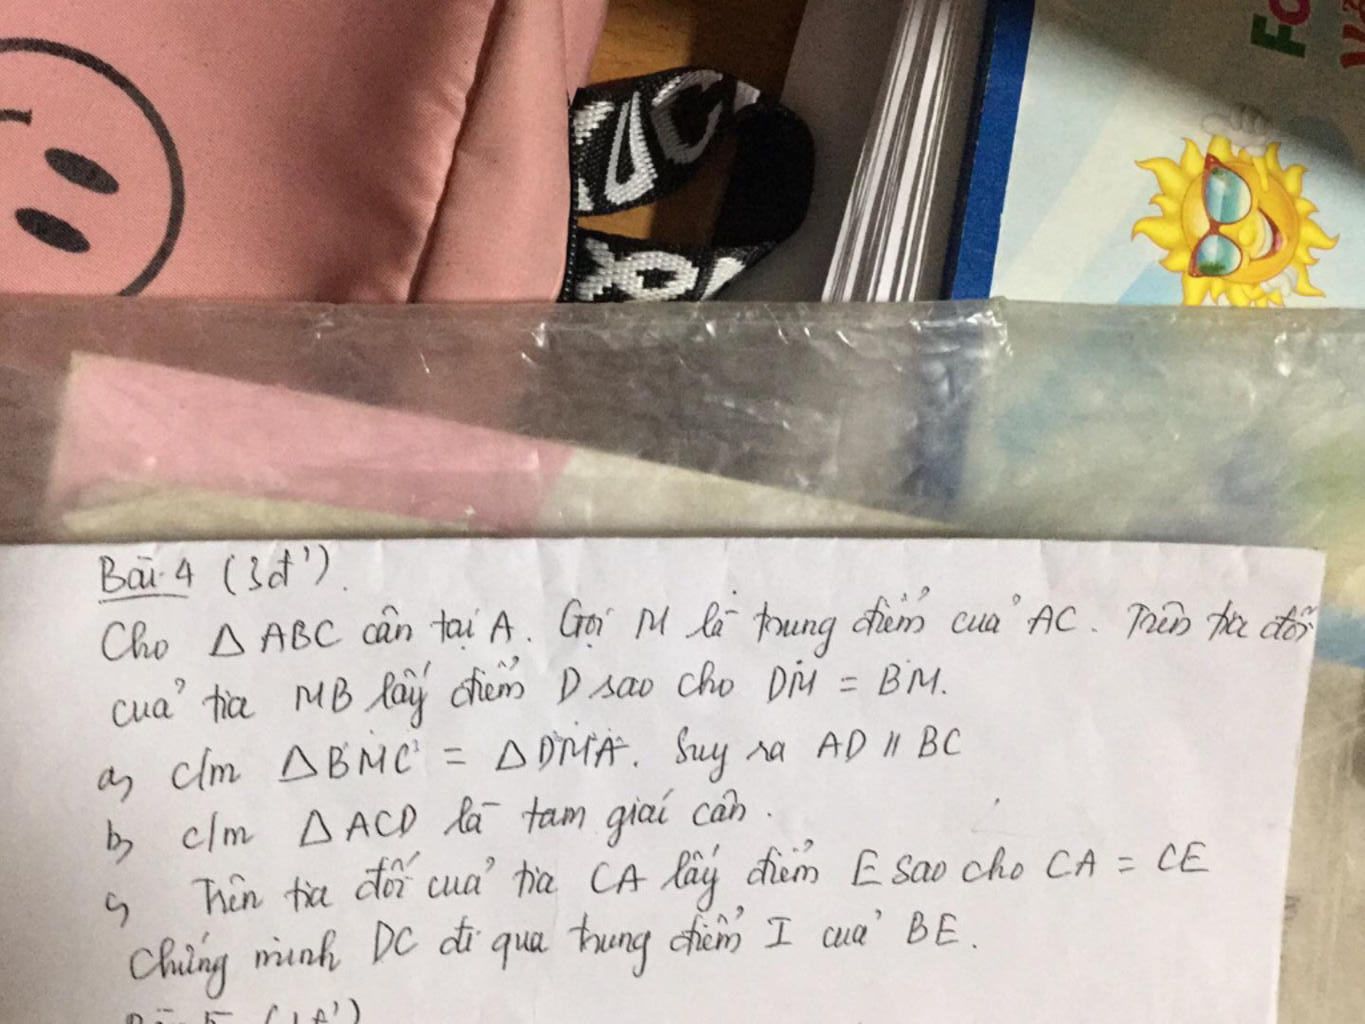 Bài 4 (3đ').
Cho △ ABC cân tại A. Gọi M là trung điểm của AC. Trên tia đối
của tia MB lấy điểm D sao cho DM = BM.
a, c/m △BMC = △DMA. Suy ra AD // BC
b, c/m △ ACD là tam giác cân.
c, Trên tia đối của tia CA lấy điểm E sao cho CA = CE
Chứng minh DC đi qua trung điểm I của BE.